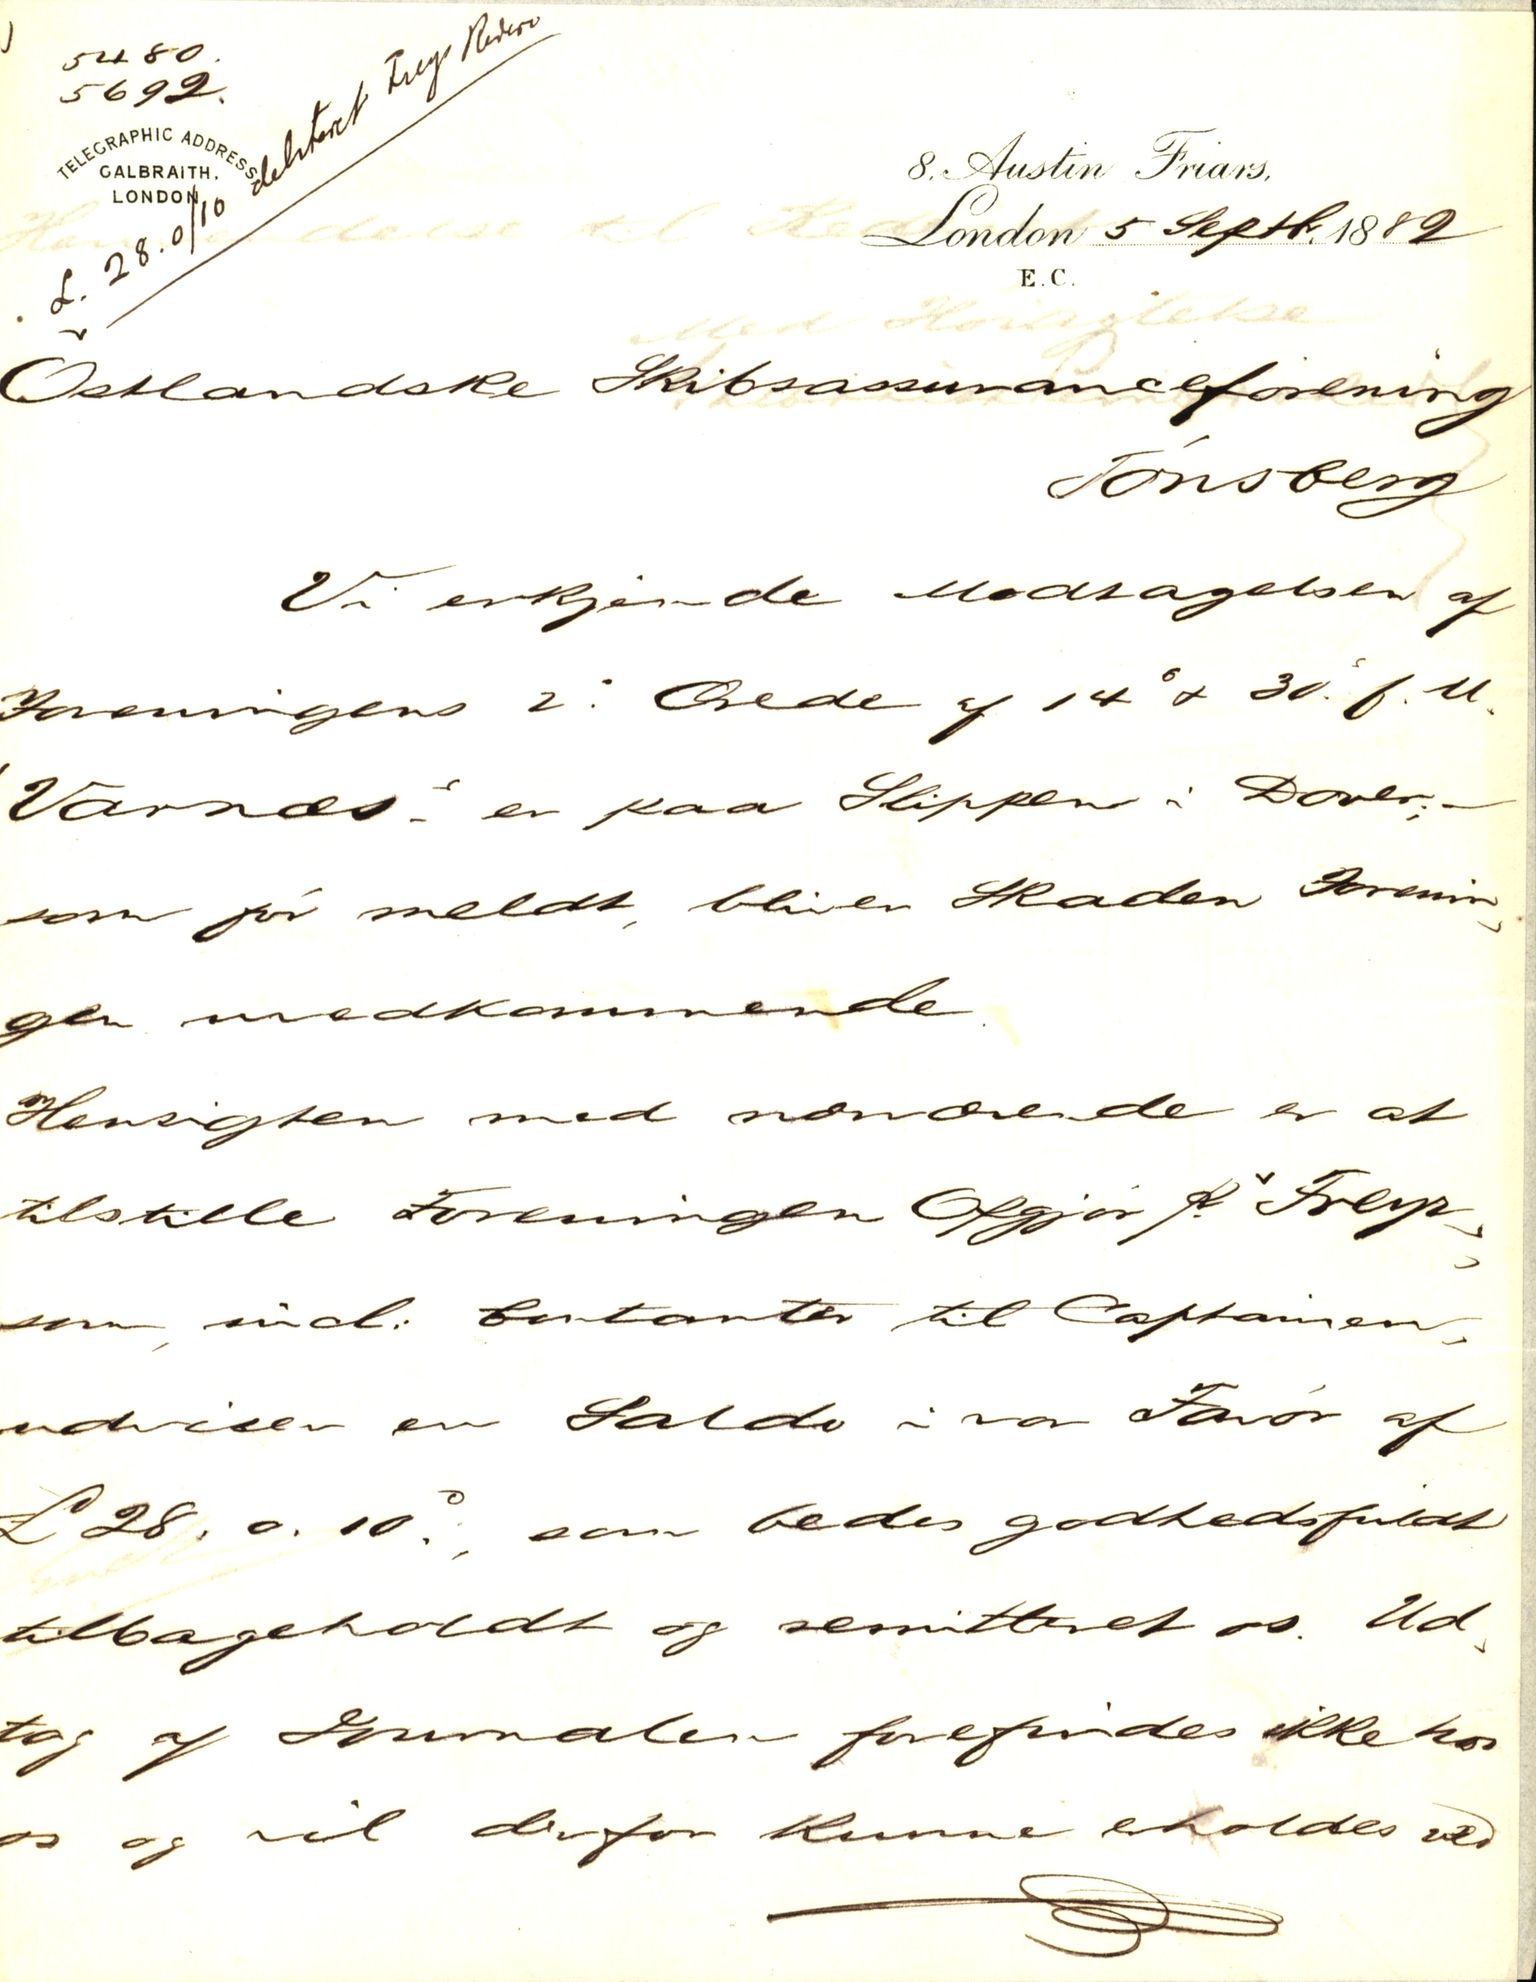 5480.
5692.
TELEGRAPHIC ADDRESS
GALBRAITH.
LONDON
£. 28.0/10 debiteret Freys Rederi
8, Austin Friars,
London 5 Septb. 1882
E.C.
Østlandske Skibsassuranceforening
Tönsberg
Vi erkjende Modtagelsen af
Foreningens 2: Ærede af 14° & 30.' f. M.
"Varnæs" er paa Slippen i Dover;-
som för meldt, bliver Skaden Forenin,
gen uvedkommende.
Hensigten med nærværende er at
tilstille Foreningen Opgjör pr "Freyr",
som, incl: Contanter til Captainen,
udviser en Saldo i vor Favör af
£ 28. 0. 10°, som bedes godhedsfuldt
tilbageholdt og remitteret os. Ud,
tog af Journalen forefindes ikke hos
os og vil derfor kunne erholdes ved